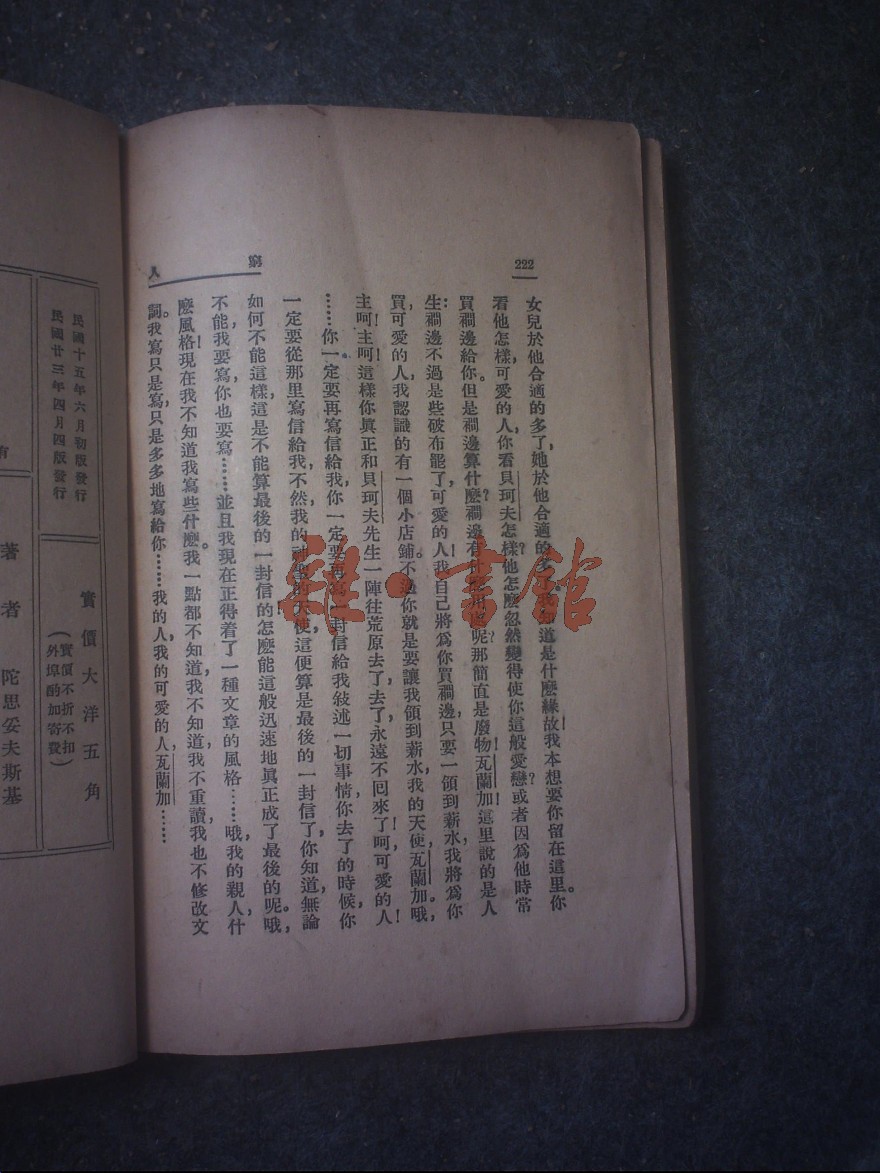 222
窮人
女兒於他合適的多了她於他合適的多。我知道是什麼緣故！我本想要你留在這里。你
看他怎樣，可愛的人，你看貝珂夫怎樣？他怎麼忽然變得使你這般愛戀？或者因爲他時常
買襉邊給你。但是襉邊算什麼？襉邊有什麼用處呢？那簡直是廢物，瓦蘭加！這里說的是人
生：襉邊不過是些破布罷了，可愛的人！我自己將爲你買襉邊，只要一領到薪水，我將爲你
買，可愛的人，我認識的有一個小店鋪。不過你就是要讓我領到薪水，我的天使，瓦蘭加。哦，
主呵！主呵！這樣你眞正和貝珂夫先生一陣往荒原去了，去了永遠不回來了！呵，可愛的人！
……你一定要再寫信給我，你一定要再寫一封信給我敍述一切事情，你去了的時候，你
一定要從那里寫信給我，不然，我的神聖的天使，這便算是最後的一封信了，你知道，無論
如何不能這樣，這是不能算最後的一封信的。怎麼能這般迅速地眞正成了最後的呢。哦，
不能，我要寫，你也要寫……並且我現在正得着了一種文章的風格……哦，我的親人，什
麽風格！現在我不知道我寫些什麽。我一點都不知道，我不知道，我不重讀，我也不修改文
詞。我寫只是寫，只是多多地寫給你……我的人，我的可愛的人，瓦蘭加……
民國十五年六月初版發行
民國廿三年四月四版發行
實價大洋五角
（實價不折不扣
外埠酌加寄費）
有
著者 陀思妥夫斯基
雜·書館